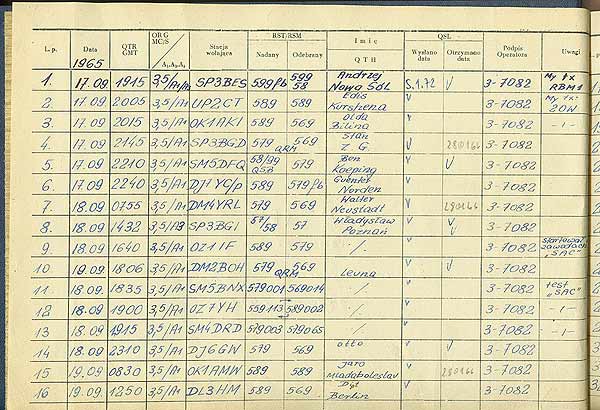 L.p. Data QTR GMT QRG MC/S A₁,A₂,A₃ Stacja wołająca RST/RSM Nadany Odebrany Imię QTH QSL Wysłano data Otrzymano data Podpis Operatora Uwagi
1965
1. 17.09 1915 3,5/A1 SP3BES 599fb 599 58 Andrzej Nowa Sól 5.1.72 V 3-7082 My tx RBM1
2. 17.09 2005 3,5/A1 UP2CT 589 589 Edis V 3-7082 My tx: 20W
3. 17.09 2015 3,5/A1 OK1AKI 589 569 Olda Bilina V 3-7082 -〃-
4. 17.09 2145 3,5/A1 SP3BGD 579 569 QRM Stan Z.G. V 280166 3-7082
5. 17.09 2210 3,5/A1 SM5DFQ 58/99 QSB 579 Ben Koeping V V 3-7082
6. 17.09 2240 3,5/A1 DJ7YC/p 589 579fb Guenter Norden V 3-7082
7. 18.09 0755 3,5/A1 DM4YRL 579 569 Walter Neustadt V 280166 3-7082
8. 18.09 1432 3,5/A3 SP3BGI 57/58 57 Władysław Poznań V V 3-7082
9. 18.09 1640 3,5/A1 OZ1IF 589 579 ./. V 3-7082 startował w zawodach "SAC"
10 18.09 1806 3,5/A1 DM2BOH 579 569 QRM Leuna V V 3-7082
11 18.09 1835 3,5/A1 SM5BNX 579001 569014 ./. V 3-7082 test "SAC"
12 18.09 1900 3,5/A1 OZ7YH 559113 589002 ./. V 3-7082 -〃-
13 18.09 1915 3,5/A1 SM4DRD 579003 579065 ./. V 3-7082 -〃-
14 18.09 2310 3,5/A1 DJ6GW 579 569 otto V V 3-7082
15 19.09 0830 3,5/A1 OK1AMW 589 589 Jaro Mladaboleslav V 280166 3-7082
16 19.09 1250 3,5/A1 DL3HM 589 569 Berlin V 3-7082